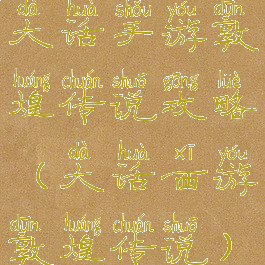 dà huà shǒu yóu dūn
大话手游敦
huáng chuán shuō gōng lüè
煌传说攻略
dà huà xī yóu
（大话西游
dūn huáng chuán shuō
敦煌传说）